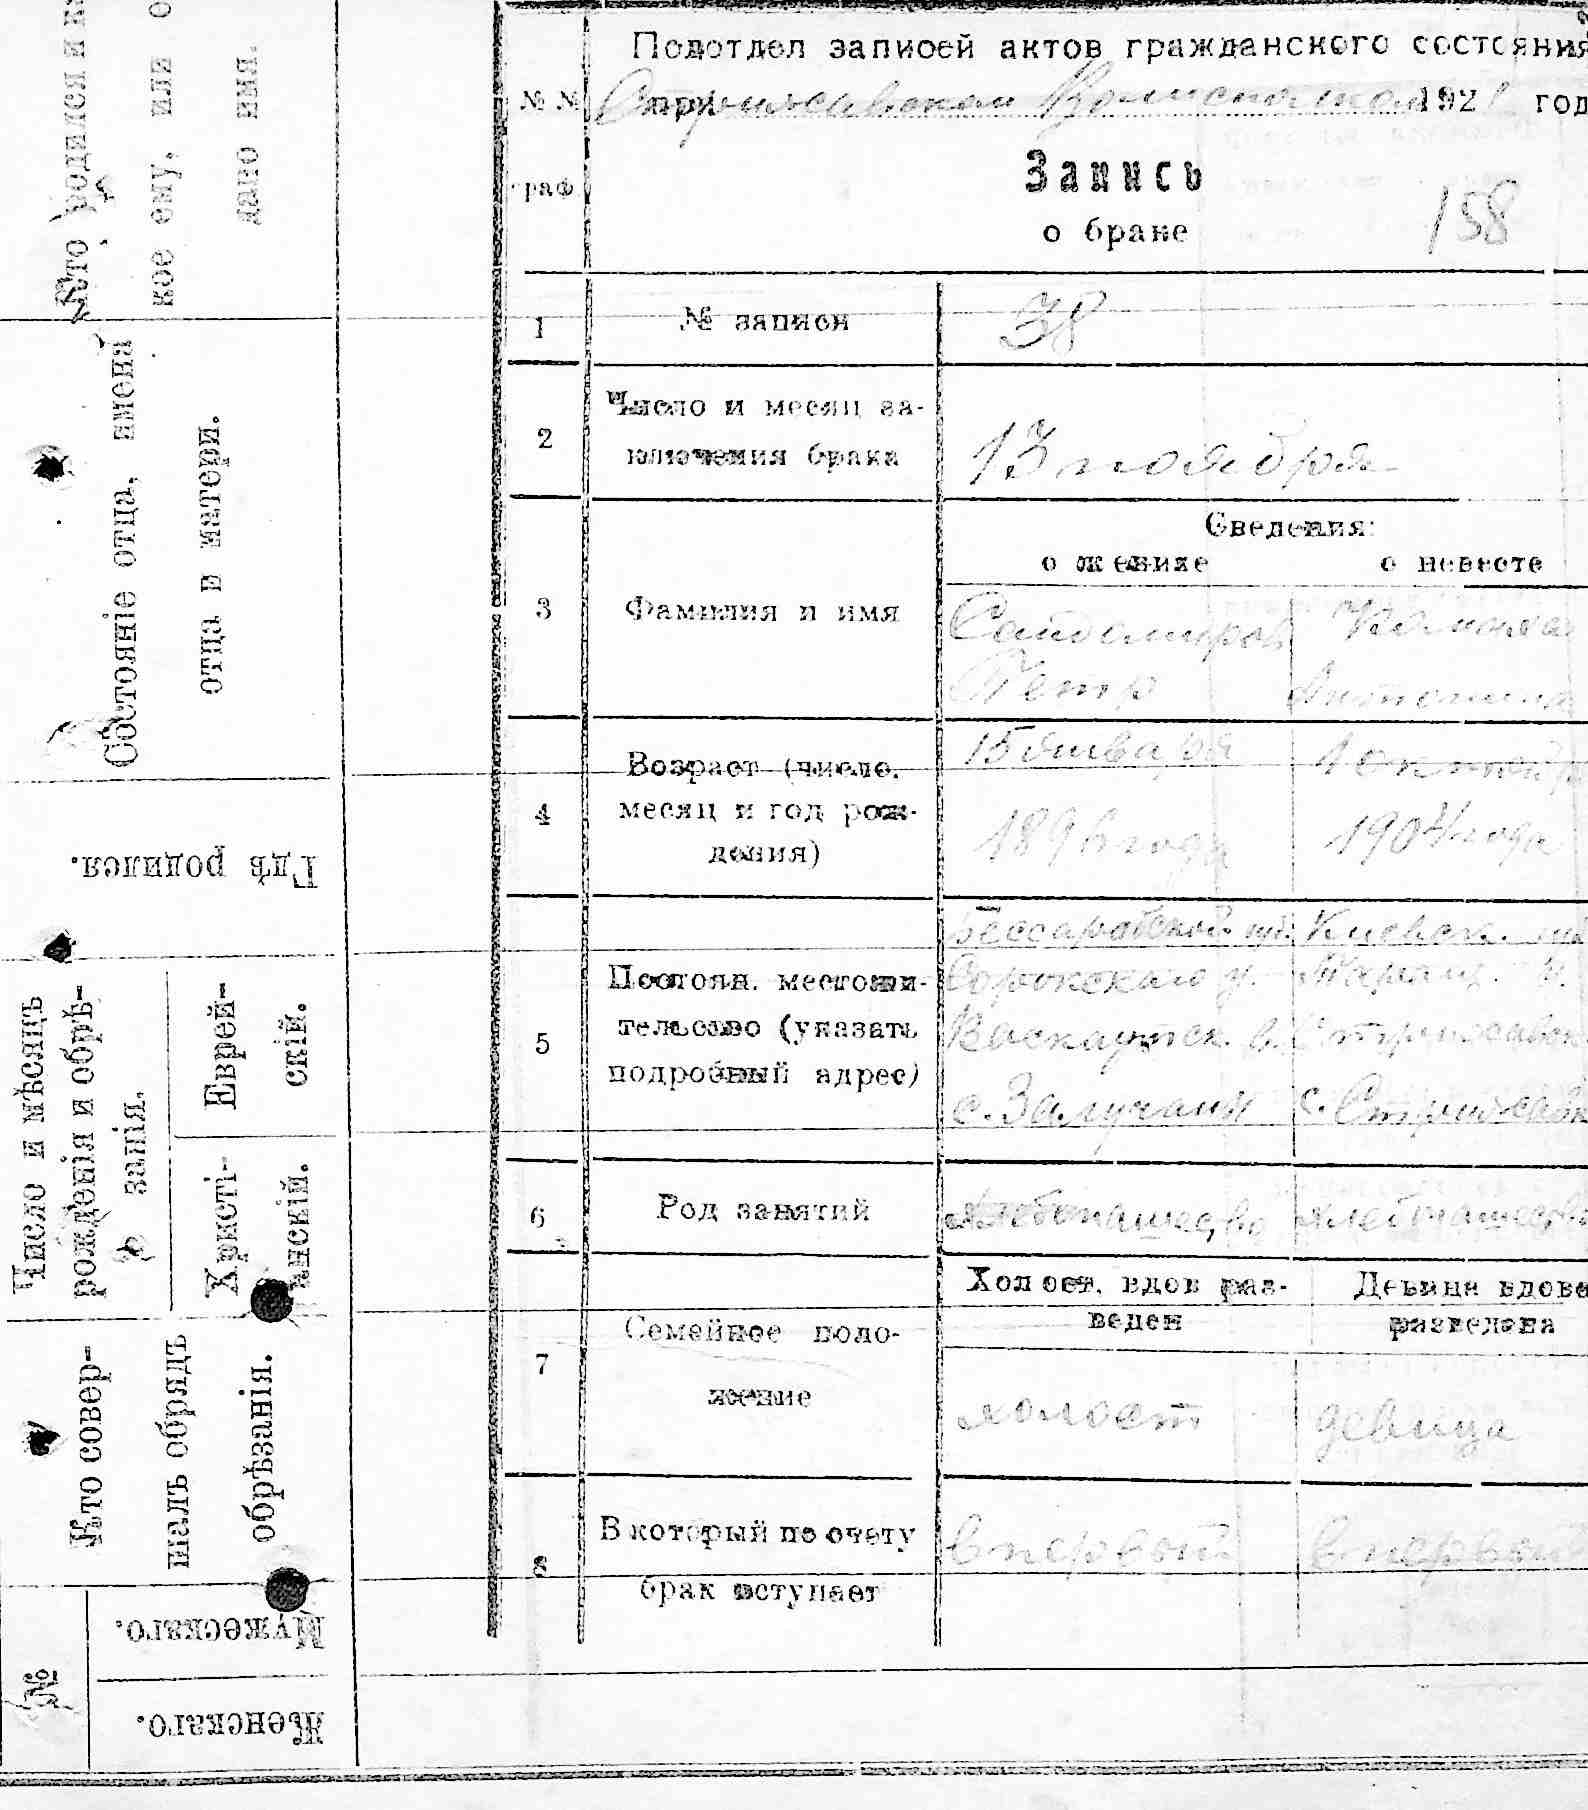 Кто родился и
кое ему, или
дано имя.
Состояніе отца, имена
отца и матери.
Гдѣ родился.
Число и мѣсяцъ
рожденія и обрѣ-
занія.
Еврей-
скій.
Христі-
анскій.
Кто совер-
шалъ обрядъ
обрѣзанія.
№
Мужескаго.
Женскаго.
Подотдел записей актов гражданского состояния
№ №
при Стрижавском Волисполкоме 192 год
граф
Запись
о браке
158
1
№ записи
38
2
Число и месяц за-
ключения брака
13 ноября
Сведения:
о женихе
о невесте
3
Фамилия и имя
Петр
Антонина
4
Возраст (число,
месяц и год рож-
дения)
15 января
1896 года
1 октября
1904 года
5
Постоян. местожи-
тельство (указать
подробный адрес)
Бессарабской губ.
Сорокского у.
Васкаутск. в.
с. Залучаны
Киевск. губ
Таращ. у.
Стрижавск
с. Стрижавк
6
Род занятий
хлебопашество
хлебопашество
7
Семейное поло-
жение
Холост, вдов раз-
веден
Девица вдова
разведена
холост
девица
8
В который по счету
брак вступает
впервый
впервый